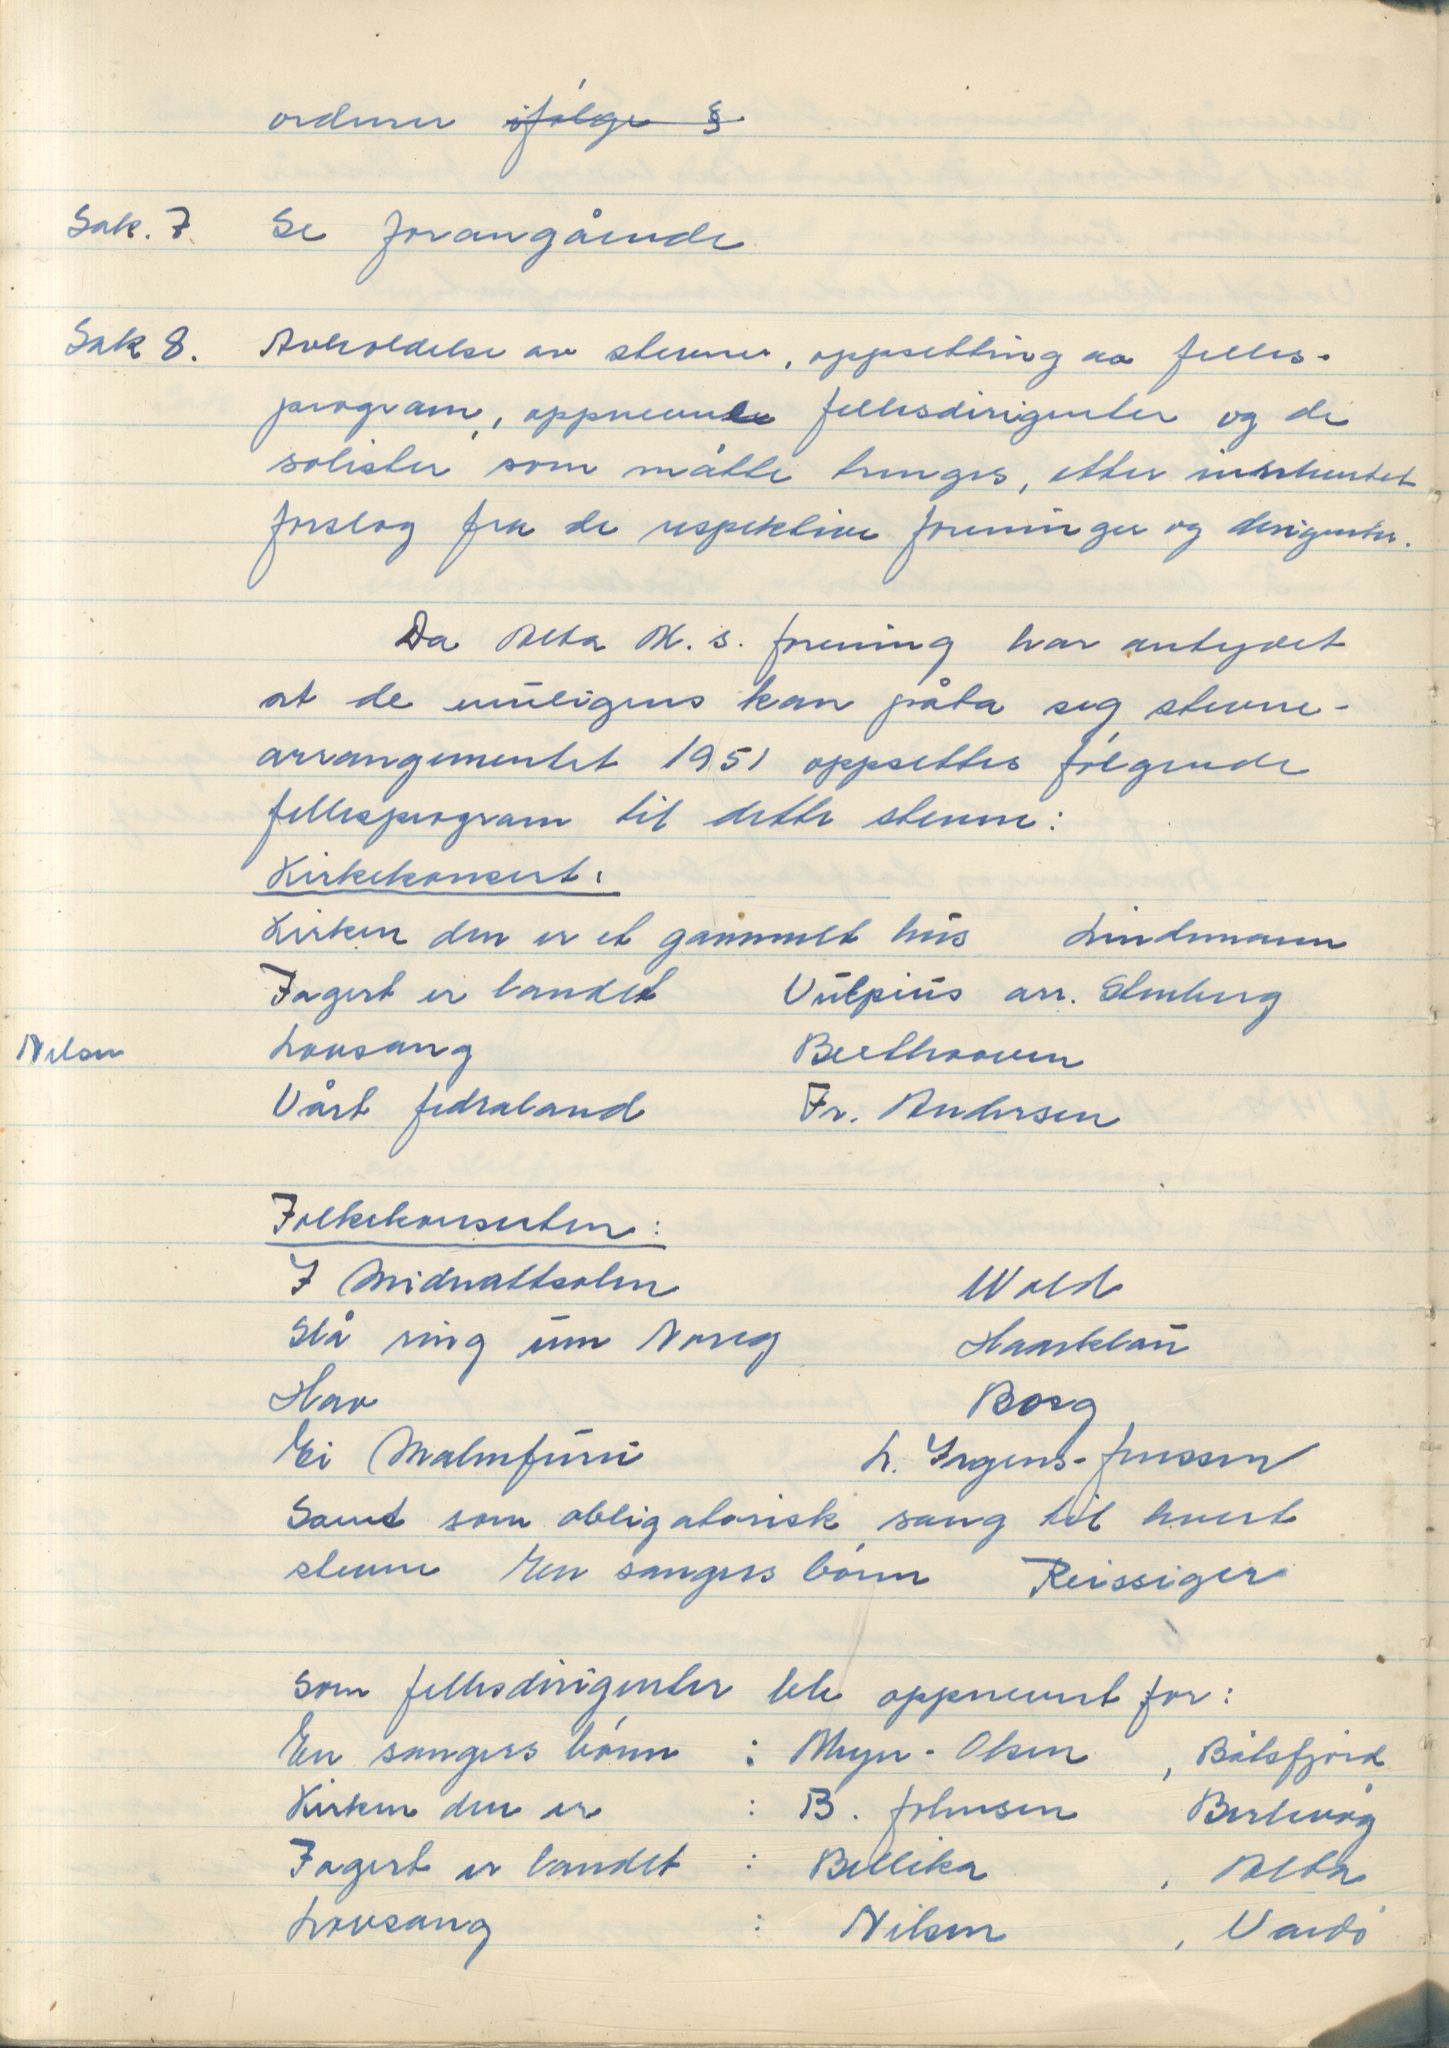 ordener ifølge §
Sak. 7 Se forangående
Sak 8. Avholdelse av stevner, oppsetting av felles-
program, oppnevne fellesdirigenter og de
solister som måtte trenges, etter innhentet
forslag fra de respektive foreninger og dirigenter.
Da Alta M. s. forening har antydet
at de muligens kan påta seg stevne-
arrangementet 1951 oppsettes følgende
fellesprogram til dette stevne:
Kirkekonsert:
Kirken den er et gammelt hus Lindemann
Fagert er landet Vulpius arr. Stenberg
Nilsen Lovsang Beethooven
Vårt fedraland Fr. Andersen
Folkekonserten:
I Midnattsolen Wold
Slå ring um Noreg Haarklau
Hav Borg
Ei Malmfuru L. Irgens-Jenssen
Samt som obligatorisk sang til hvert
stevne En sangers bønn Reissiger
Som fellesdirigenter ble oppnevnt for:
En sangers bønn : Myr-Olsen , Båtsfjord
Kirken den er : B. Johnsen Berlevåg
Fagert er landet : Bellika , Alta
Lovsang : Nilsen , Vardø